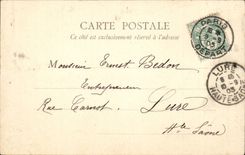 CARTE POSTALE
Ce côté est exclusivement réservé à l'adresse
PARIS
DEPART
Monsieur Ernest Bedon
Entrepreneur
Rue Carnot. Lure
Hte Saône
LURE
HAUTE-SAONE